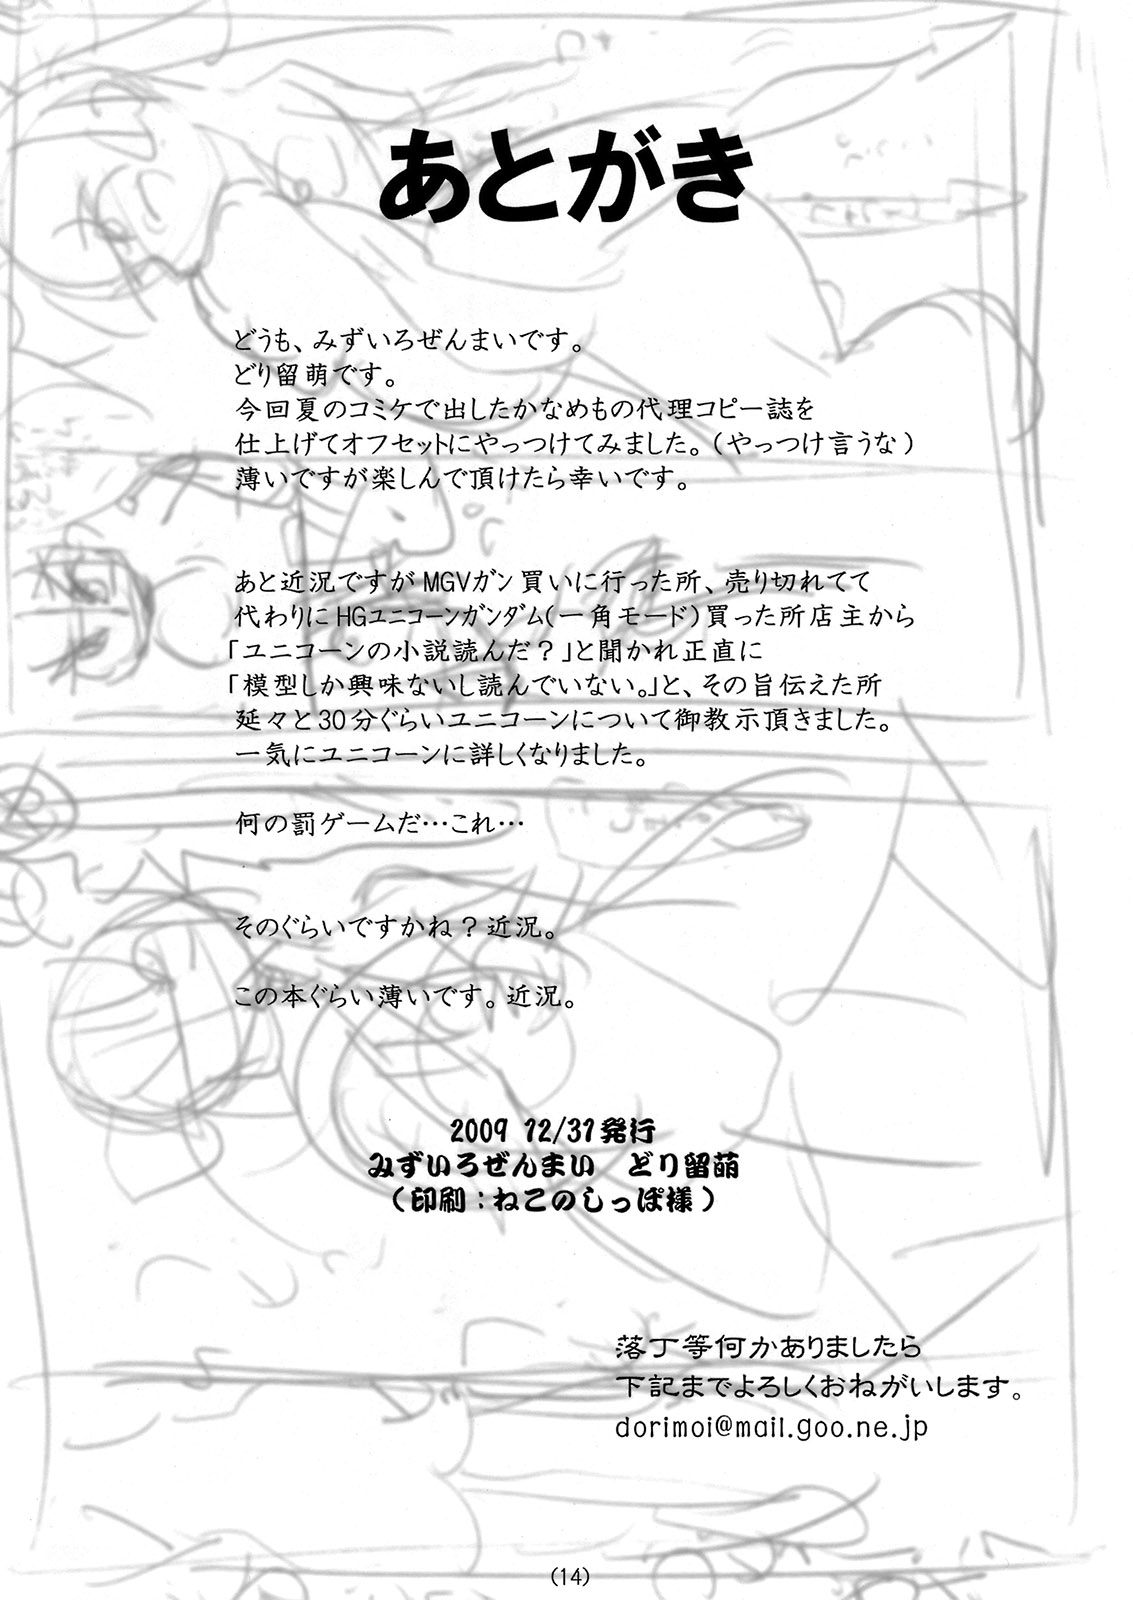 あとがき
どうも、みずいろぜんまいです。
どり留萌です。
今回夏のコミケで出したかなめもの代理コピー誌を
仕上げてオフセットにやっつけてみました。（やっつけ言うな）
薄いですが楽しんで頂けたら幸いです。
あと近況ですがMGVガン買いに行った所、売り切れてて
代わりにHGユニコーンガンダム（一角モード）買った所店主から
「ユニコーンの小説読んだ？」と聞かれ正直に
「模型しか興味ないし読んでいない。」と、その旨伝えた所
延々と30分ぐらいユニコーンについて御教示頂きました。
一気にユニコーンに詳しくなりました。
何の罰ゲームだ…これ…
そのぐらいですかね？近況。
この本ぐらい薄いです。近況。
2009 12/31発行
みずいろぜんまい　どり留萌
（印刷：ねこのしっぽ様）
落丁等何かありましたら
下記までよろしくおねがいします。
dorimoi@mail.goo.ne.jp
(14)